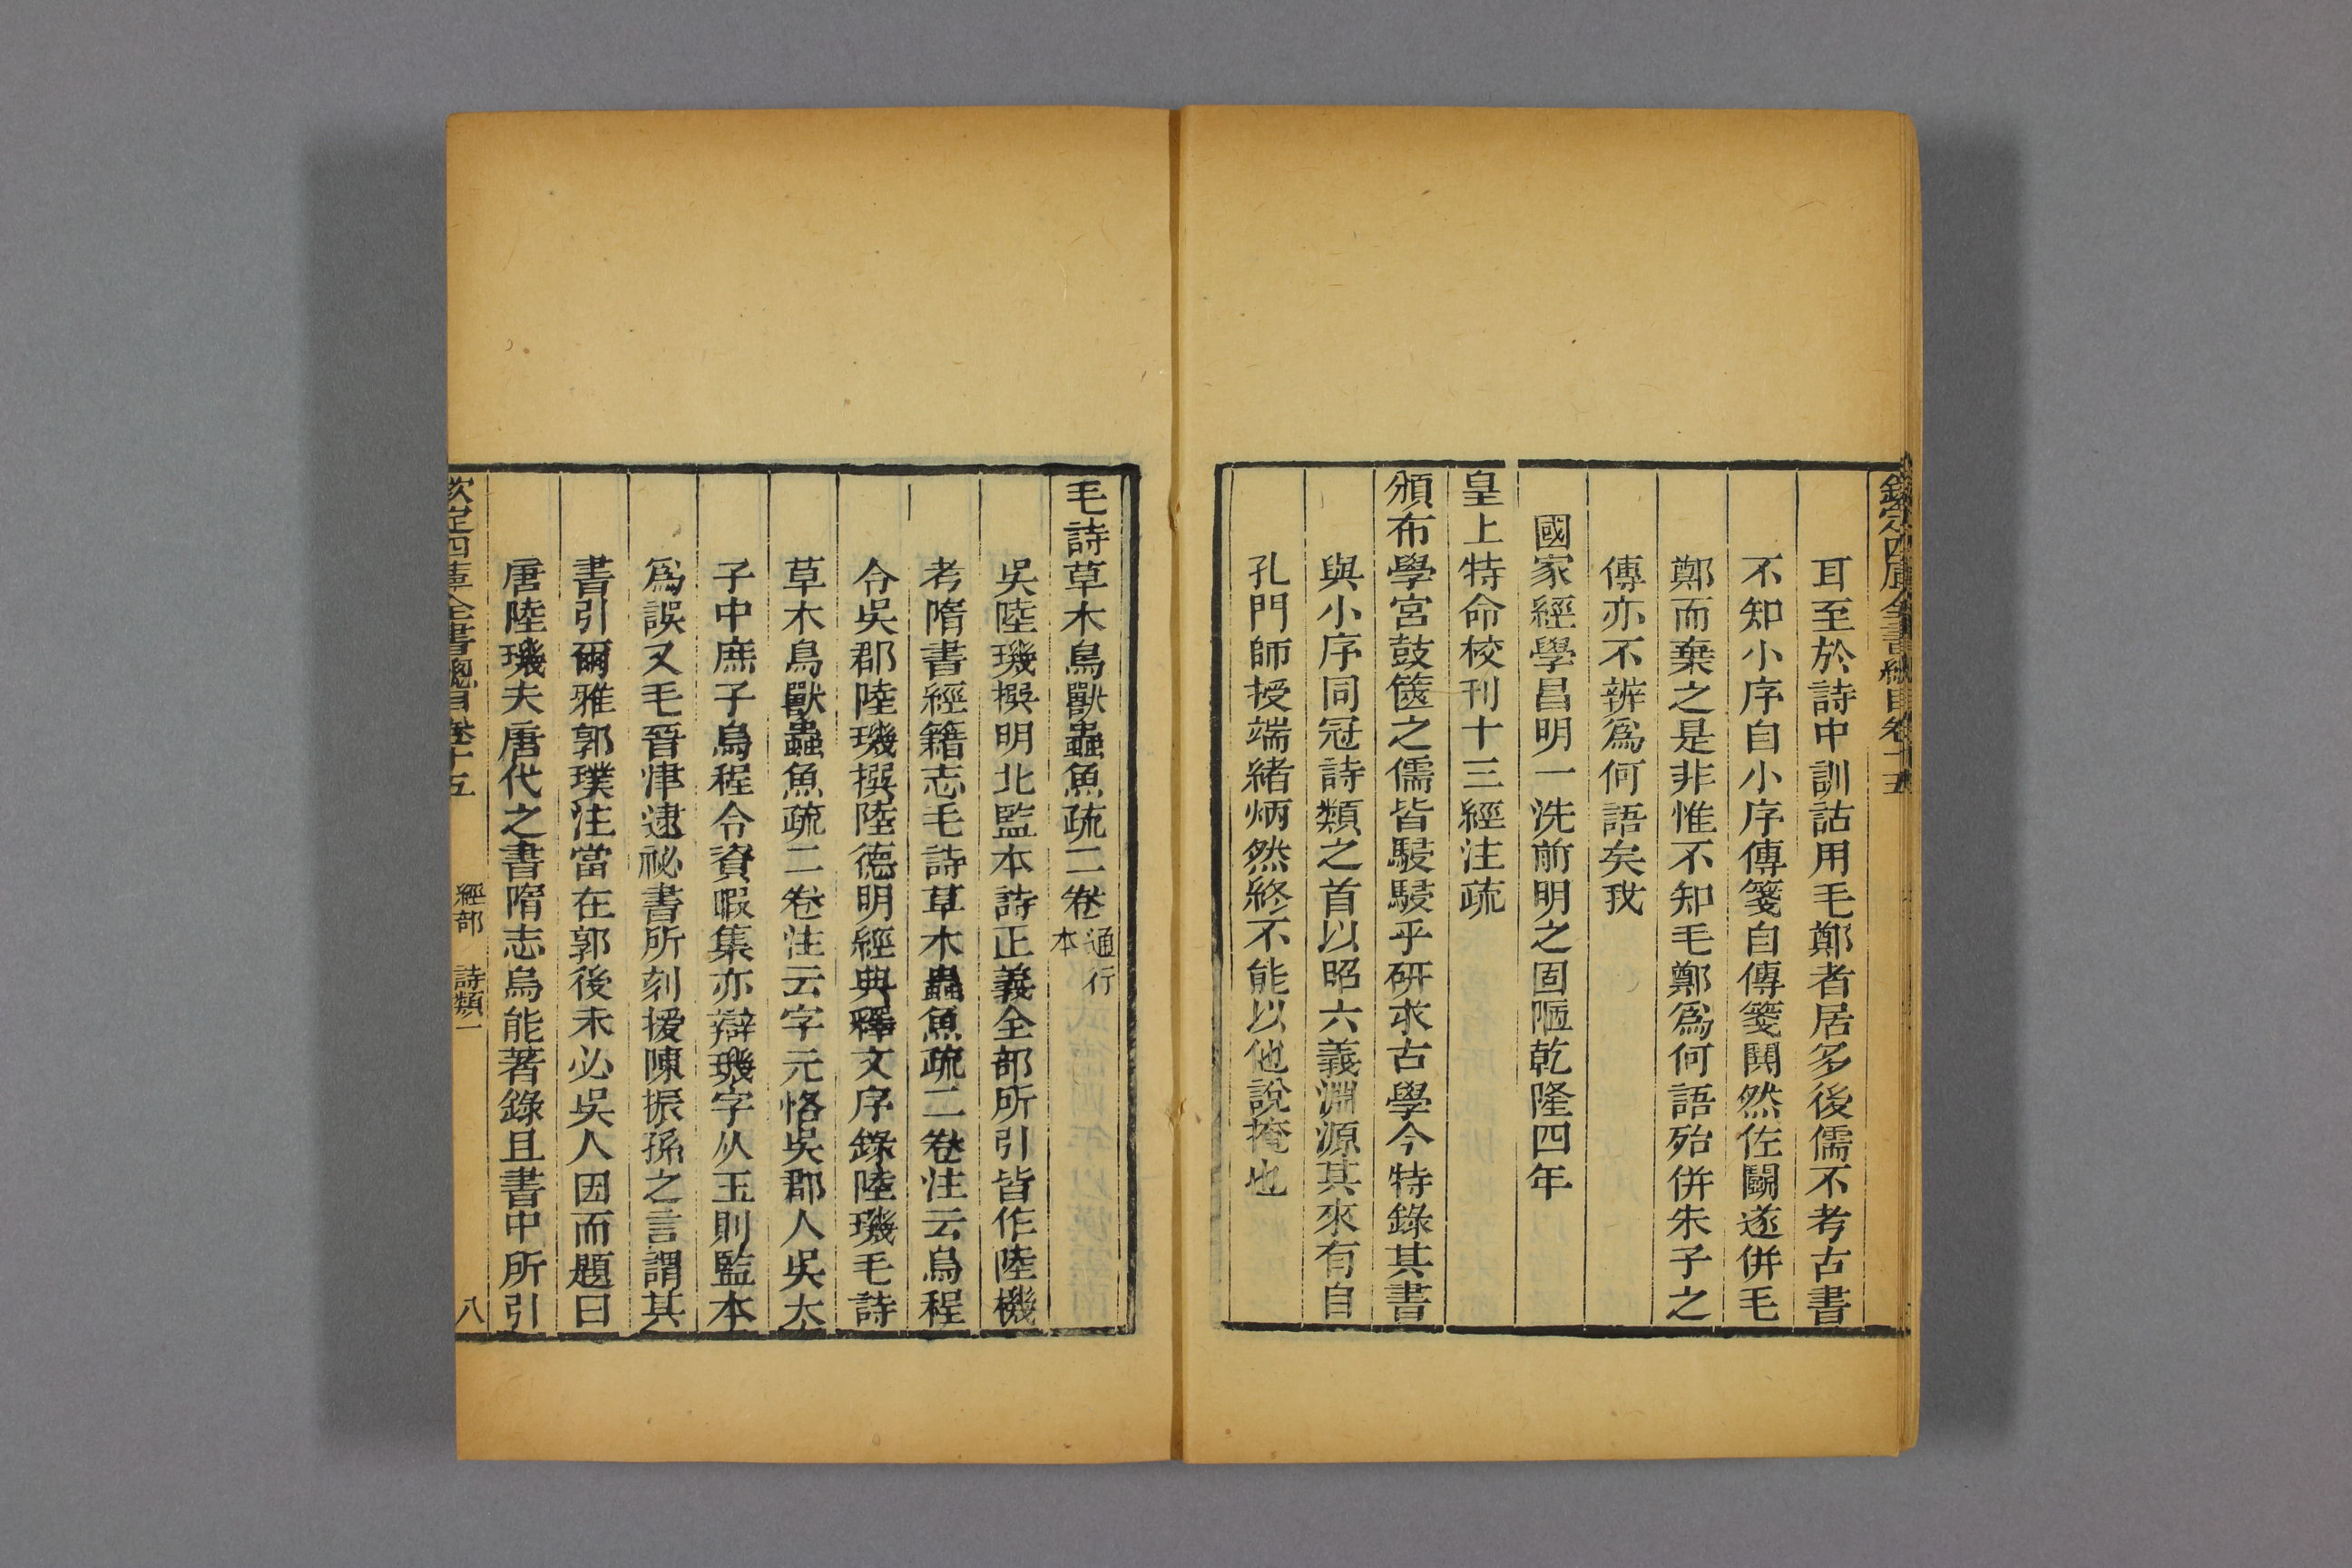 欽定四庫全書總目卷十五
耳至於詩中訓詁用毛鄭者居多後儒不考古書
不知小序自小序傳箋自傳箋鬨然佐鬭遂併毛
鄭而棄之是非惟不知毛鄭爲何語殆併朱子之
傳亦不辨爲何語矣我
國家經學昌明一洗前明之固陋乾隆四年
皇上特命校刊十三經注疏
頒布學宮鼓篋之儒皆駸駸乎研求古學今特錄其書
與小序同冠詩類之首以昭六義淵源其來有自
孔門師授端緒炳然終不能以他說掩也
毛詩草木鳥獸蟲魚疏二卷通行本
吳陸璣撰明北監本詩正義全部所引皆作陸機
考隋書經籍志毛詩草木蟲魚疏二卷注云烏程
令吳郡陸璣撰陸德明經典釋文序錄陸璣毛詩
草木鳥獸蟲魚疏二卷注云字元恪吳郡人吳太
子中庶子烏程令資暇集亦辯璣字从玉則監本
爲誤又毛晉津逮祕書所刻援陳振孫之言謂其
書引爾雅郭璞注當在郭後未必吳人因而題曰
唐陸璣夫唐代之書隋志烏能著錄且書中所引
欽定四庫全書總目卷十五 經部 詩類一 八